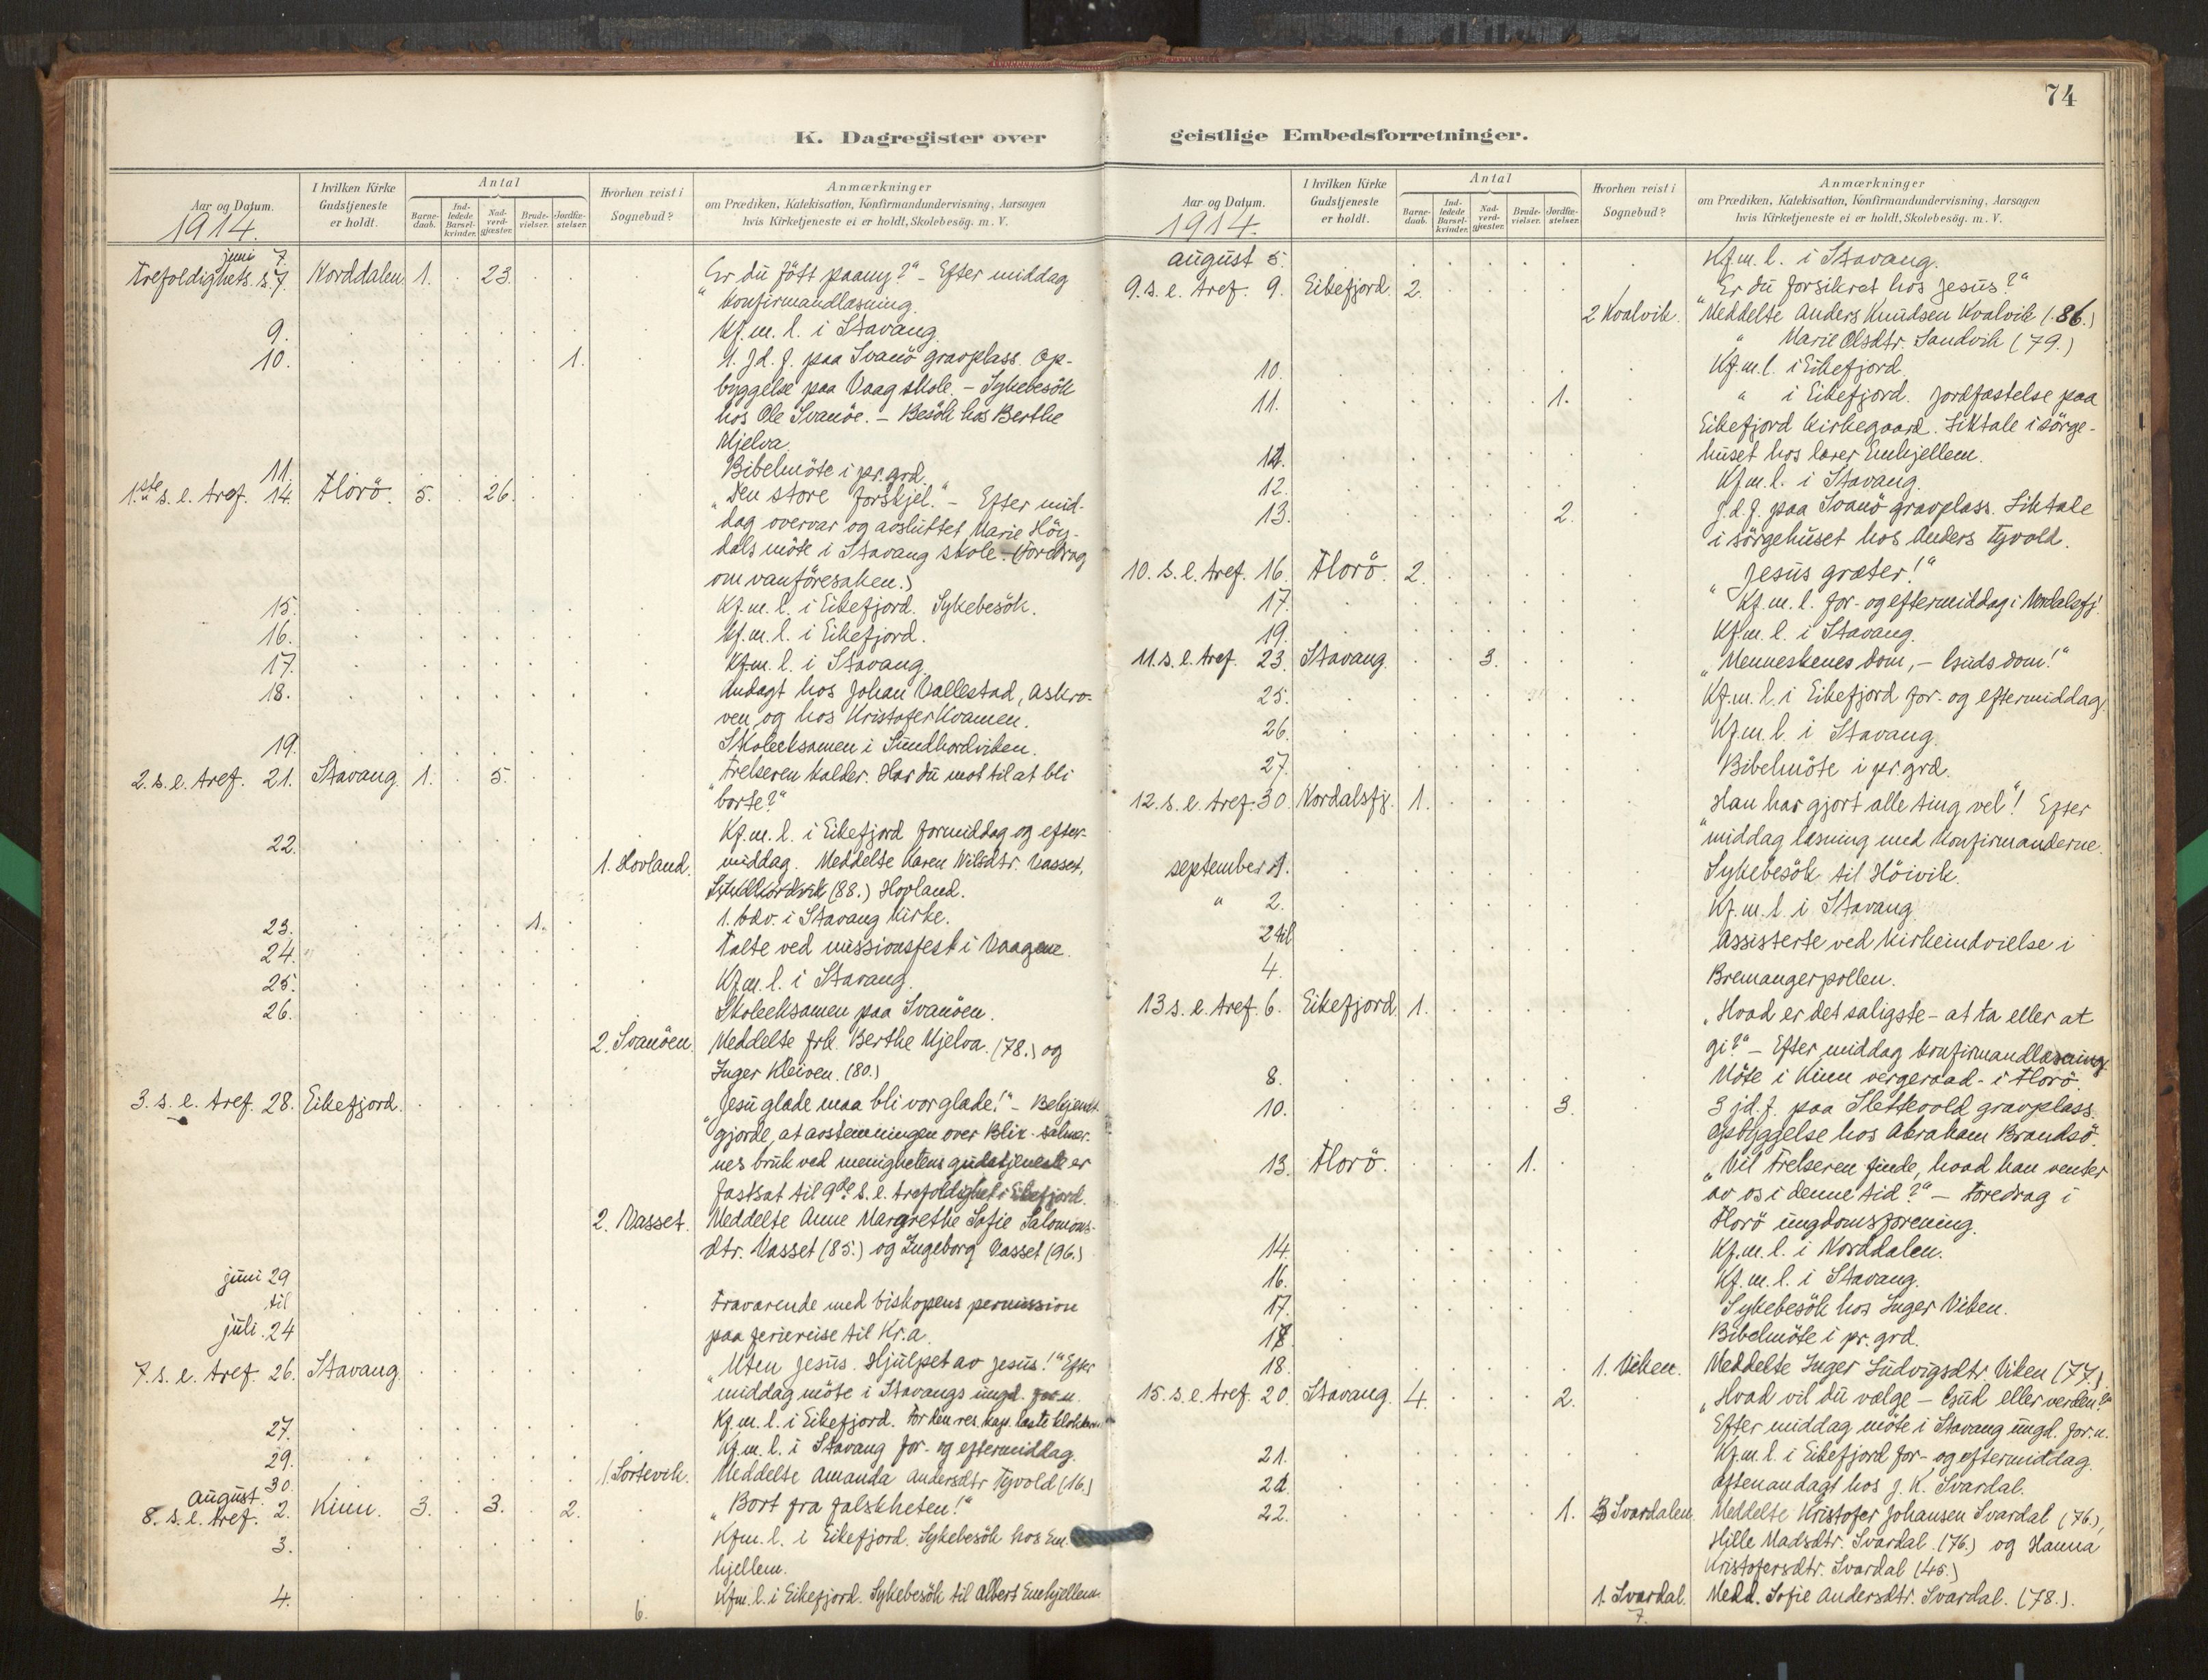 74
K. Dagregister over geistlige Embedsforretninger.
Aar og Datum. 1914.
I hvilken Kirke Gudstjeneste er holdt.
Antal
Barne-daab. Ind-ledede Barsel-kvinder. Nad-verd-gjæster. Brude-vielser. Jordfæ-stelser.
Hvorhen reist i Sognebud?
Anmærkninger
om Prædiken, Katekisation, Konfirmandundervisning, Aarsagen
hvis Kirketjeneste ei er holdt, Skolebesög. m. V.
juni 7.
Trefoldighets. s. 7. Norddalen 1. 23. "Er du födt paany?" - Efter middag
konfirmandlæsning.
9. Kf.m.l. i Stavang.
10. 1. 1. Jd. f. paa Svanö gravplass. Op-
byggelse paa Vaag skole. - Sykebesök
hos Ole Svanöe. - Besök hos Berthe
Mjelva.
11. Bibelmöte i pr.grd.
1.ste s. e. tref. 14. Florö. 5. 26. "Den store forskjel." - Efter mid-
dag overvar og avsluttet Marie Höy-
dals möte i Stavang skole. (Foredrag
om vanföresaken.)
15. Kf.m.l. i Eikefjord. Sykebesök.
16. Kf.m.l. i Eikefjord.
17. Kf.m.l. i Stavang.
18. Andagt hos Johan Vallestad, Askro-
ven og hos Kristofer Kvamen.
19. Skoleeksamen i Sundhordviken.
2. s. e. tref. 21. Stavang. 1. 5. "Frelseren kalder. Har du mot til at bli
borte?"
22. Kf.m.l. i Eikefjord formiddag og efter-
1. Hovland. middag. Meddelte Karen Nilsdtr. Vasset,
(88.) Hovland.
23. 1. 1. bdv. i Stavang kirke.
24. Talte ved missionsfest i Vaagene.
25. Kf.m.l. i Stavang.
26. Skoleeksamen paa Svanöen.
2. Svanöen. Meddelte frk. Berthe Mjelva. (78.) og
Inger Kleiven. (80.)
3. s. e. tref. 28. Eikefjord. "Jesu glæde maa bli vor glæde!" - Bekjendt-
gjorde, at avstemningen over Blix-salmer-
nes bruk ved menighetens gudstjeneste er
fastsat til 9de s. e. trefoldighet i Eikefjord.
2. Vasset. Meddelte Anne Margrethe Sofie Salomons-
dtr. Vasset (85.) og Ingeborg Vasset (96.)
juni 29
til Fraværende med biskopens permission
juli. 24 paa feriereise til Kr.a.
7. s. e. tref. 26. Stavang. "Uten Jesus. Hjulpet av Jesus!" Efter
middag möte i Stavangs ungd. for.n.
27. Kf.m.l. i Eikefjord. For den res. kap. læste klokkeren
29. Kf.m.l. i Stavang for- og eftermiddag.
30. 1. Sortevik. Meddelte Amanda Andersdtr Tyvold (16.)
August.
8. s. e. tref. 2. Kinn. 3. 3. 2. "Bort fra falskheten!"
3. Kf.m.l. i Eikefjord. Sykebesök hos Em-
hjellem.
4. Kf.m.l. i Eikefjord. Sykebesök til Albert Emhjellem.
6.
Aar og Datum. 1914.
I hvilken Kirke Gudstjeneste er holdt.
Antal
Barne-daab. Ind-ledede Barsel-kvinder. Nad-verd-gjæster. Brude-vielser. Jordfæ-stelser.
Hvorhen reist i Sognebud?
Anmærkninger
om Prædiken, Katekisation, Konfirmandundervisning, Aarsagen
hvis Kirketjeneste ei er holdt, Skolebesög. m. V.
august 5. Kf.m.l. i Stavang.
9. s. e. tref. 9. Eikefjord. 2. "Er du forsikret hos Jesus?"
2 Kvalvik. Meddelte Anders Knudsen Kvalvik (86.)
" Marie Olsdtr. Sandvik (79.)
10. Kf.m.l. i Eikefjord.
11. 1. " i Eikefjord. Jordfæstelse paa
Eikefjord kirkegaard. Liktale i sörge-
12. huset hos lærer Emhjellem.
12. Kf.m.l. i Stavang.
13. 2. J.d.f. paa Svanö gravplass. Liktale
i sörgehuset hos Anders Tyvold.
10. s. e. tref. 16. Florö. 2. "Jesus græter!"
17. Kf.m.l. for- og eftermiddag i Nordalsfj.
19. Kf.m.l. i Stavang.
11. s. e. tref. 23. Stavang. 3. "Menneskenes dom, - Guds dom!"
25. Kf.m.l. i Eikefjord for- og eftermiddag.
26. Kf.m.l. i Stavang.
27. Bibelmöte i pr.grd.
12. s. e. tref. 30. Nordalsfj. 1. "Han har gjort alle ting vel"! Efter
middag læsning med konfirmanderne.
september 1. Sykebesök til Höivik.
" 2. Kf.m.l. i Stavang.
2 til Assisterte ved kirkeindvielse i
4. Bremangerpollen.
13 s. e. tref. 6. Eikefjord 1. "Hvad er det saligste - at ta eller at
gi?" - Efter middag konfirmandlæsning.
8. Möte i Kinn vergeraad - i Florö.
10. 3. 3 jd.f. paa Slettevold gravplass.
Opbyggelse hos Abraham Brandsö.
13. Florö. 1. "Vil Frelseren finde, hvad han venter
av os i denne tid?" - Foredrag i
Florö ungdomsforening.
14. Kf.m.l. i Norddalen.
16. Kf.m.l. i Stavang.
17. Sykebesök hos Inger Viken.
18. Bibelmöte i pr.grd.
18. 1. Viken. Meddelte Inger Ludvigsdtr. Viken (77.)
15. s. e. tref. 20 Stavang. 4. 2. "Hvad vil du vælge - Gud eller verden?"
Efter middag möte i Stavang ungd. for.n.
21. Kf.m.l. i Eikefjord for- og eftermiddag.
Aftenandagt hos J. K. Svardal.
22. 1. 3 Svardalen. Meddelte Kristofer Johansen Svardal (76.),
Hille Madsdtr. Svardal. (76.) og Hanna
Kristofersdtr. Svardal (45.)
1. Svardal. Medd. Sofie Andersdtr. Svardal. (78.).
7.